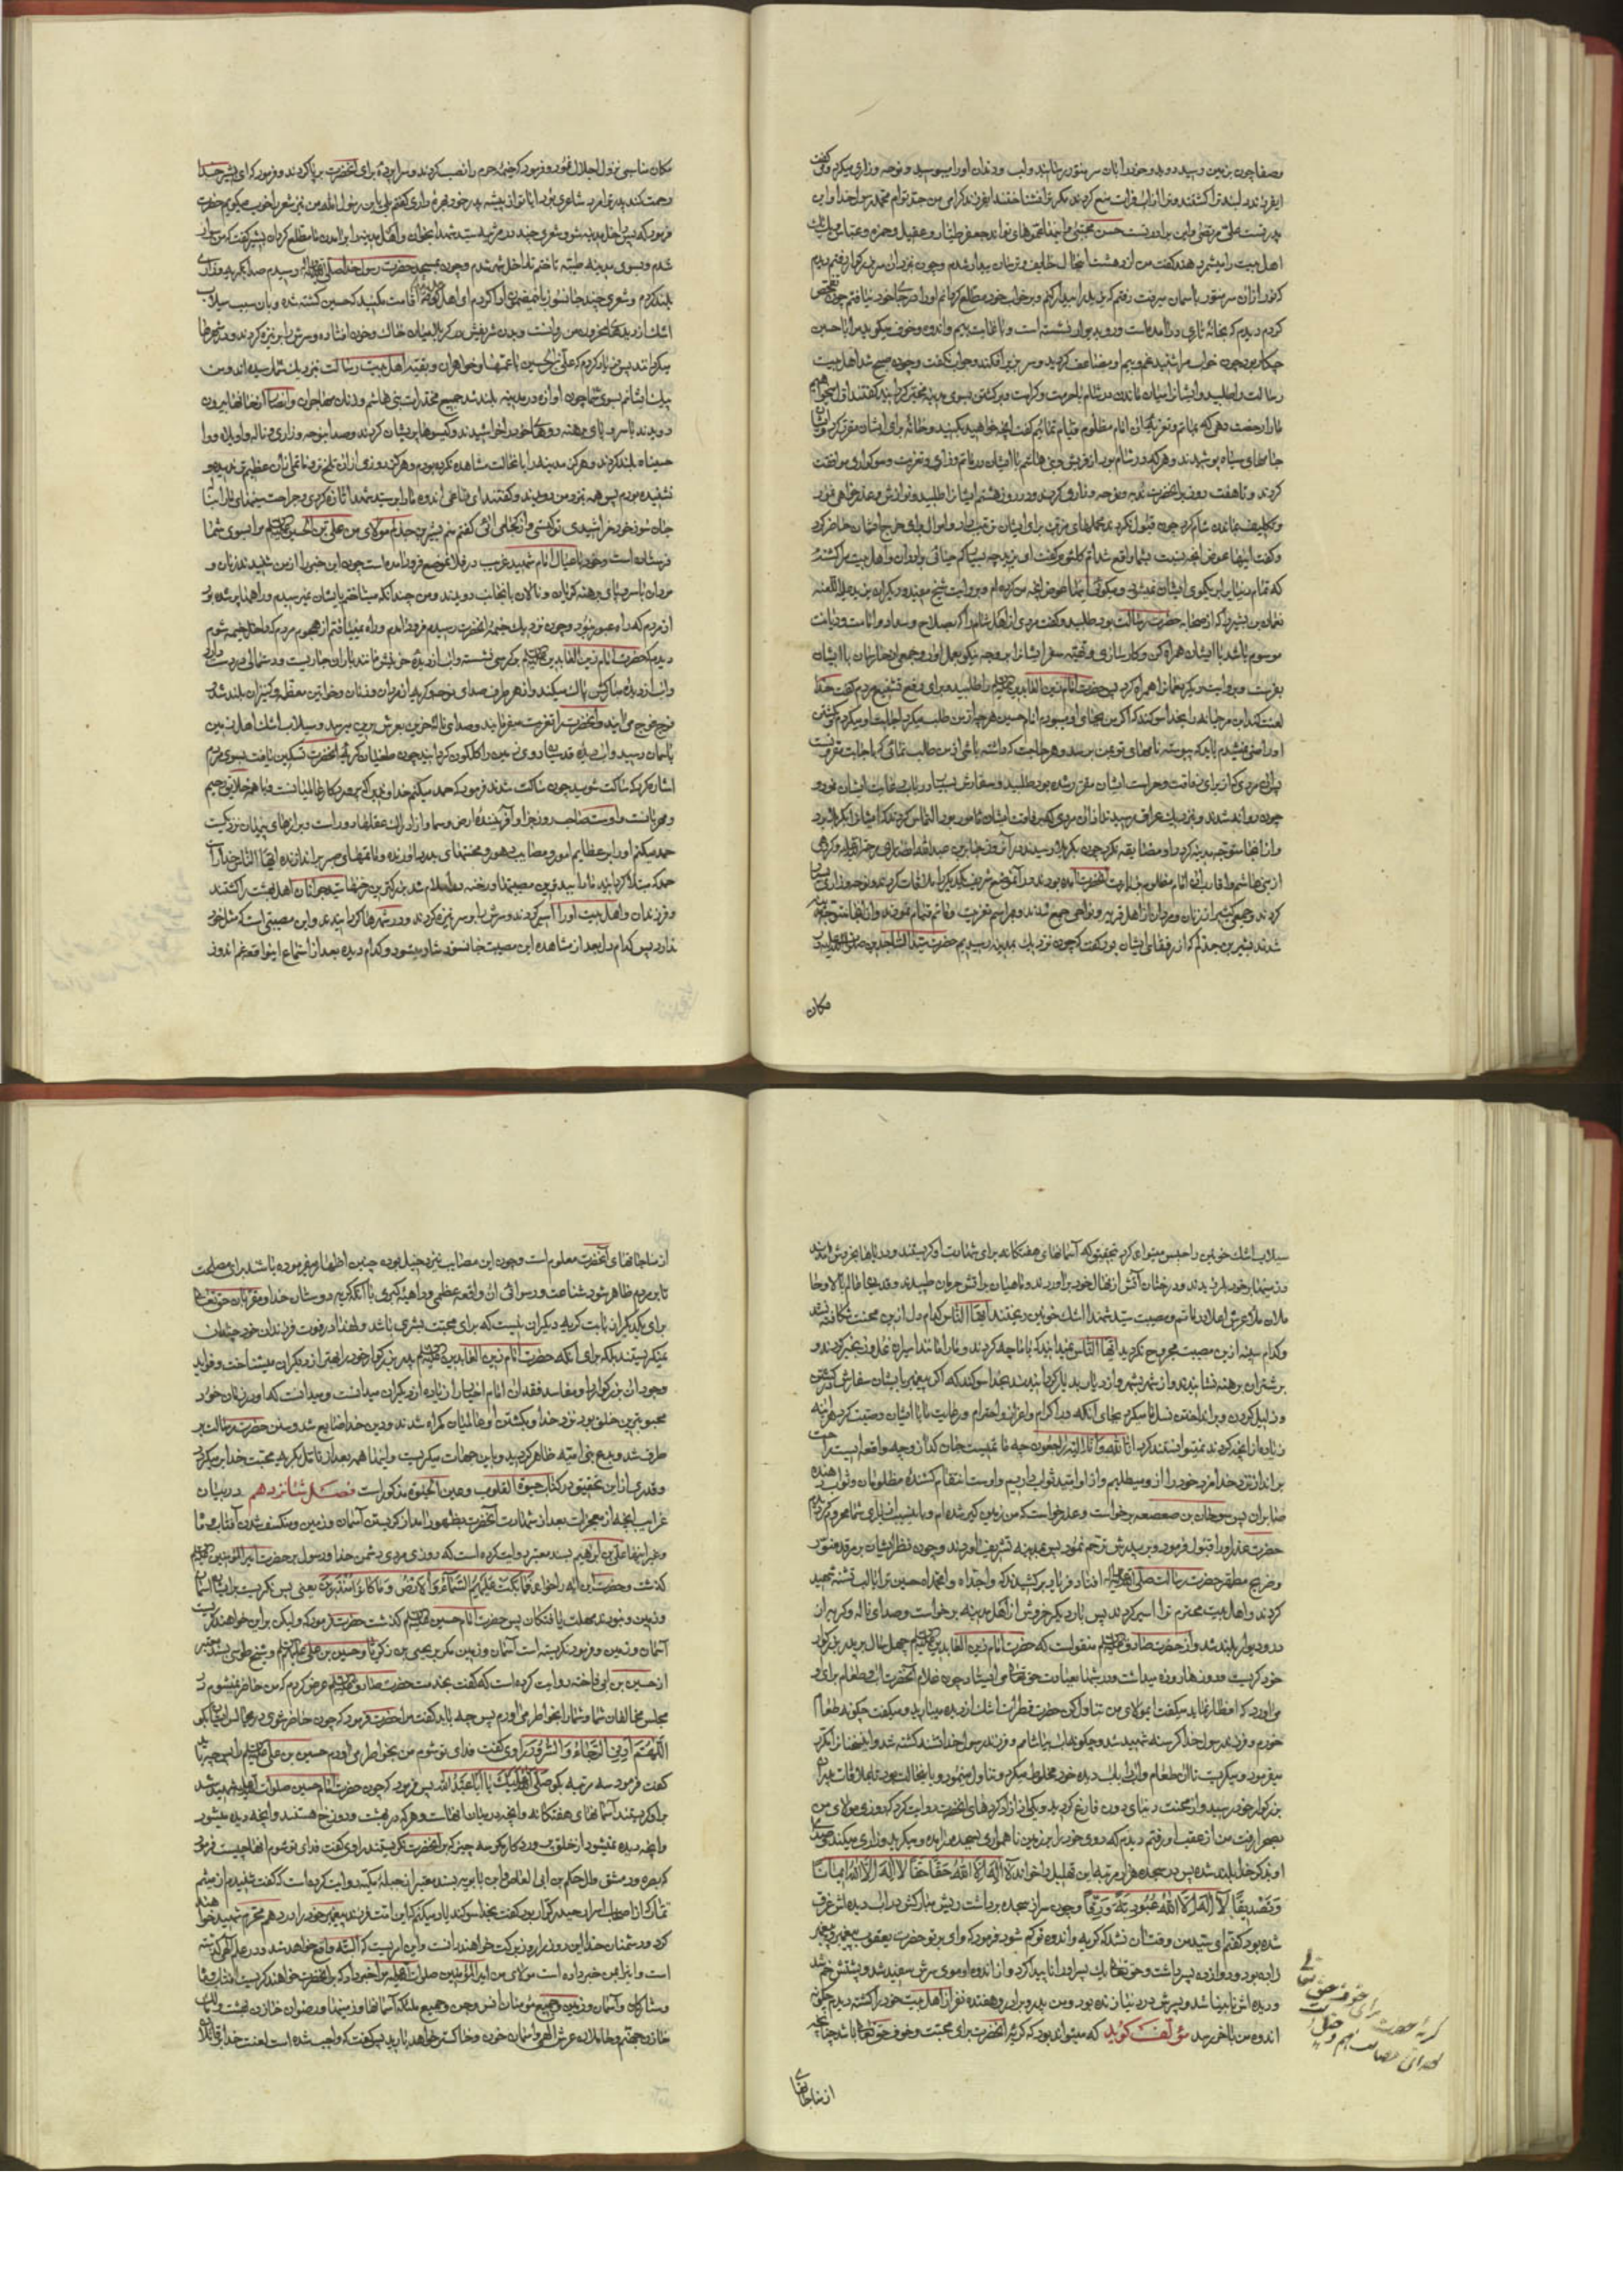 و صفا چون بزمین رسید دوید و خود را بان سر منور رسانید و لب و دندان او را میبوسید و نوحه و زاری میکرد و میگفت
ایفرزند دلبند ترا کشتند و ترا از اب فرات منع کردند مگر ترا نشناختند ایفرزند گرامی من جد توام محمد رسول خدا و این
پدر تست علی مرتضی و این برادر تست حسن مجتبی و اینها عموهای تواند جعفر طیار و عقیل و حمزه و عباس و یک یک
اهل بیت را میشمرد هند گفت من از دهشت اینحال خایف و ترسان بیدار شدم و چون نزد ان سر بزرگوار رفتم دیدم
که نور از ان سر منور باسمان میرفت رفتم که یزید را بیدار کنم و بر خواب خود مطلع گردانم او را در جای خود نیافتم چون تفحص
کردم دیدم که بخانه تاری در امده است و رو بدیوار نشسته است و با غایت بیم و اندوه و خوف میگوید مرا با حسین
چکار بود چون خواب مرا شنید غم و بیم او مضاعف گردید و سر بزیر افکند و جواب نگفت و چون صبح شد اهل بیت
رسالت را طلبید و ایشانرا میان ماندن در شام با حرمت و کرامت و برگشتن بسوی مدینه مخیر گردانید گفتند اول میخواهیم
ما را رخصت دهی که بماتم و تعزیه ان امام مظلوم قیام نماییم گفت انچه خواهید بکنید و خانه برای ایشان مقرر کرد و ایشان
جامهای سیاه پوشیدند و هر که در شام بود از قریش و بنی هاشم با ایشان در ماتم و زاری و تعزیت و سوکواری موافقت
کردند و تا هفت روز بر انحضرت ندبه و نوحه و زاری کردند و در روز هشتم ایشانرا طلبید و نوازش و عذر خواهی نمود
و تکلیف ماندن شام کرد چون قبول نکردند محملهای مزین برای ایشان ترتیب داد و اموال برای خرج ایشان حاضر کرد
و گفت اینها عوض انچه نسبت بشما واقع شد ام کلثوم گفت ای یزید چه بسیار کم حیائی برادران و اهل بیت مرا کشته
که تمام دنیا برابر یکموی ایشان نمیشود و میگوئی اینها عوض انچه من کرده ام و بروایت شیخ مفید و دیگران یزید علیه اللعنه
نعمان بن بشیر را که از صحابه حضرت رسالت بود طلبید و گفت مردی از اهل شام را که بصلاح و سداد و امانت و دیانت
موسوم باشد با ایشان همراه کن و کار سازی و تهیه سفر ایشانرا بر وجه نیکو بعمل اور و جمعی از حارسان با ایشان
بفرست و بروایت دیگر نعمانرا همراه کرد پس حضرت امام زین العابدین علیه السلام را طلبید و برای رفع تشنیع مردم گفت خدا
لعنت کند ابن مرجانه را بخدا سوگند که اگر من بجای او میبودم امام حسین هر چه از من طلب میکرد اجابت او میکردم و بکشتن
او راضی نمیشدم باید که پیوسته نامهای تو بمن برسد و هر حاجت که داشته باشی از من طلب نمائی که باجابت مقرونست
پس ان مردی که از برای رفاقت و حراست ایشان مقرر شده بود طلبید و سفارش بسیار در باب رعایت ایشان نمود و
چون روانه شدند و بنزدیک عراق رسیدند از ان مردی که برفاقت ایشان مامور بود التماس کردند که ایشانرا بکربلا برد
و از انجا متوجه مدینه گرداند او مضایقه نکرد چون بکربلا رسیدند در ان روز جابر بن عبد الله انصاری رضی الله عنه و گروهی
از بنی هاشم و اقارب ان امام مظلوم بزیارت انحضرت امده بودند و در ان موضع شریف یکدیگر را ملاقات کردند و نوحه و زاری بسیار
کردند و جمعی کثیر از زنان و مردان از اهل قریه و نواحی جمع شدند و مراسم تعزیت و ماتم قیام نمودند و از انجا متوجه مدینه
شدند بشیر بن جذلم که از رفقای ایشان بود گفت که چون نزدیک بمدینه رسیدیم حضرت سید الساجدین صلوات الله علیه در
مکان
مکان مناسبی نزول اجلال نمود و فرمود که خیمه حرم را نصب کردند و سراپرده برای انحضرت برپا کردند و فرمود که ای بشیر خدا
رحمت کند پدر ترا مرد شاعری بود ایا تو از پیشه پدر خود بهره داری گفتم بلی یابن رسول الله من نیز شعر را خوب میگویم حضرت
فرمود که پس داخل مدینه شو و شعری چند در مرثیه سید شهدا بخوان و اهل مدینه را بر امدن ما مطلع گردان بشیر گفت که من سوار
شدم و بسوی مدینه طیبه تاختم تا داخل شهر شدم و چون بمسجد حضرت رسول خدا صلی الله علیه واله رسیدم صدا بگریه و زاری
بلند کردم و شعری چند جانسوز باین مضمون ادا کردم ای اهل مدینه اقامت مکنید که حسین کشته شده و بان سبب سیلاب
اشک از دیدهای محزون من روانست و بدن شریفش در کربلا میان خاک و خون افتاده و سرش را بر نیزه کردند و در شهرها
میگردانند پس فریاد کردم که علی بن الحسین با عمتها و خواهران و بقیه اهل بیت رسالت نزدیک شما رسیده اند و من
پیک ایشانم بسوی شما چون اوازه در مدینه بلند شد جمیع مخدرات بنی هاشم و زنان مهاجران و انصار از خانها بیرون
دویدند با سر و پای برهنه رویهای خود را خراشیدند و گیسوها پریشان کردند و صدا بنوحه و زاری و ناله و واویلاه و وا
حسیناه بلند کردند و هرگز مدینه را باینحالت مشاهده نکرده بودم و هرگز روزی از ان تلخ تر و ماتمی از ان عظیم تر ندیده و
نشنیده بودم پس همه نزد من دویدند و گفتند ای ناعی اندوه ما را بر سید شهدا تازه کردی و جراحت سینهای ما را باتش
جان سوز خود خراشیدی تو کیستی و از کجا می ائی گفتم منم بشیر بن جذلم مولای من علی بن الحسین علیه السلام مرا بسوی شما
فرستاده است و خود با عیال امام شهید غریب در فلان موضع فرود امده است چون این خبر را از من شنیدند زنان و
مردان با سر و پای برهنه گریان و نالان بانجانب دویدند و من چندانکه میشتافتم بایشان نمیرسیدم و راهها پر شده بود
از مردم که راه عبور نبود و چون نزدیک خیمه انحضرت رسیدم فرود امدم و راه نمییافتم از هجوم مردم که داخل خیمه شوم
دیدم که حضرت امام زین العابدین علیه السلام بر کرسی نشسته و اب از دیده حق بینش مانند باران جاریست و دستمالی در دست دارد
و اب از دیدهای مبارکش پاک میکند و از هر طرف صدای نوحه و گریه از مردان و زنان و خواتین معظمه و کنیزان بلند شد
فوج فوج می ایند و انحضرت را تعزیت میفرمایند و صدای ناله حزین بعرش برین میرسد و سیلاب اشک اهل زمین
باسمان رسید و اب دیده قدسیان روی زمین را گلگون گردانید چون طغیان گریه انحضرت تسکین یافت بسوی مردم
اشاره کرد که ساکت شوید چون ساکت شدند فرمود که حمد میکنم خداوندی را که پروردگار عالمیانست و با همه خلایق رحیم
و مهربانست و اوست صاحب روز جزا و افریننده ارض و سما و از ادراک عقلها دور است و برازهای پنهان نزدیکست
حمد میکنم او را بر عظایم امور و مصایب دهور و محنتهای بدرد اورنده و ماتمهای صبر براندازنده ایها الناس خدا را
حمد که مبتلا گردانید ما را ببزرگترین مصیبتها و رخنه در اسلام شد بزرگترین رخنها سید جوانان اهل بهشت را کشتند
و فرزندان و اهل بیت او را اسیر کردند و سرش را بر سر نیزه کردند و در شهرها گردانیدند و این مصیبتی است که مثل خود
ندارد پس کدام دل بعد از مشاهده این مصیبت جانسوز شاد میشود و کدام دیده بعد از استماع اینواقعه غم اندوز
سیلاب اشک خونین را حبس میتواند کرد بتحقیق که اسمانهای هفتگانه برای شهادت او گریستند و دریاها بخروش امدند
و زمینها بر خود لرزیدند و درختان اتش از نهال خود براوردند و ماهیان بر اتش حرمان طپیدند و قدسیان عالم بالا و حا
ملان ملاء عرش اعلا در ماتم و مصیبت سید شهدا اشک خونین ریختند ایها الناس کدام دل از این محنت شکافته نشد
و کدام سینه از این مصیبت مجروح نگردید ایها الناس نمیدانید که با ما چه کردند و ما را مانند اسیران عدوان بغیر گردند و
بر شتران برهنه نشانیدند و از شهر بشهر و از دیار بدیار گردانیدند بخدا سوگند که اگر پیغمبر بایشان سفارش در کشتن
و ذلیل کردن و برانداختن نسل ما میکرد بجای انکه در اکرام و اعزاز و احترام و رعایت ما با ایشان وصیت کرد هر اینه
زیاده از انچه کردند نمیتوانستند کرد انا لله و انا الیه راجعون چه مصیبت جان گداز و چه واقعه ایست راحت
برانداز نزد خدا مزد خود را از او میطلبیم و از او امید ثواب داریم و اوست انتقام کشنده مظلومان و ثواب دهنده
صابران پس صوحان بن صعصعه برخواست و عذر خواست که من زمین گیر شده ام و باین سبب از یاری شما محروم گردیدم
حضرت عذر او را قبول فرمود و بر پدرش ترحم نمود پس بمدینه تشریف اوردند و چون نظر ایشان بر مرقد منور
و ضریح مطهر حضرت رسالت صلی الله علیه واله افتاد فریاد برکشیدند که واجداه وامحمداه حسین ترا با لب تشنه شهید
کردند و اهل بیت محترم ترا اسیر کردند پس بار دیگر خروش از اهل مدینه برخواست و صدای ناله و گریه از
در و دیوار بلند شد و از حضرت صادق علیه السلام منقولست که حضرت امام زین العابدین علیه السلام چهل سال بر پدر بزرگوار
خود گریست و روزها روزه میداشت و در شبها بعبادت حق تعالی می ایستاد چون غلام انحضرت اب و طعام برای او
می اورد که افطار نماید میگفت ایمولای من تناول کن حضرت قطرات اشک از دیده میبارید و میگفت چگونه طعام
خورم و فرزند رسول خدا گرسنه شهید شد و چگونه اب بیاشامم و فرزند رسول خدا تشنه کشته شد و این سخنانرا مکرر
میفرمود و میگریست تا ان طعام و اب را باب دیده خود مخلوط میکرد و تناول مینمود و باینحالت بود تا ملاقات پدر
بزرگوار خود رسید و از محنت دنیای دون فارغ گردید و یکی از ازاد کردهای انحضرت روایت کرد که روزی مولای من
بصحرا رفت من از عقب او رفتم دیدم که روی خود را بر زمین ناهمواری بسجده نهاده و میگرید و زاری میکند و صدای
او بذکر خدا بلند شده پس در سجده هزار مرتبه این تهلیل را خواند لا اله الا الله حقا حقا لا اله الا الله ایمانا
و تصدیقا لا اله الا الله عبودیة و رقا و چون سر از سجده برداشت ریش مبارکش در اب دیده اش غرق
شده بود گفتم ای سید من وقت ان نشد که گریه و اندوه تو کم شود فرمود که وای بر تو حضرت یعقوب پیغمبر و پیغمبر
زاده بود و دوازده پسر داشت و حق تعالی یک پسر او را ناپیدا کرد و از اندوه او موی سرش سفید شد و پشتش خم شد
و دیده اش نابینا شد و پسرش در دنیا زنده بود و من پدر و برادر و هفده نفر از اهل بیت خود را کشته دیدم چگونه
اندوه من باخر رسد مؤلف گوید که میتواند بود که گریه انحضرت برای محبت و خوف حق تعالی باشد چنانچه
گریه حضرت برای خوف حق تعالی
از مناجاتهای
از مناجاتهای انحضرت معلوم است و چون این مصایب نیز دخیل بوده چنین اظهار میفرموده باشد برای مصلحت
تا بر مردم ظاهر شود شناعت و رسوائی ان واقعه عظمی و داهیه کبری با انکه گریه دوستان خدا و مقربان حق تعالی
برای یکدیگر از بابت گریه دیگران نیست که برای محبت بشری باشد و لهذا در فوت فرزندان خود چندان
نمیگریستند بلکه برای انکه حضرت امام زین العابدین علیه السلام پدر بزرگوار خود را بهتر از دیگران میشناخت و فواید
وجود ان بزرگوار را و مفاسد فقدان امام اخیار را زیاده از دیگران میدانست و میدانست که او در زمان خود
محبوبترین خلق بود نزد خدا و بکشتن او عالمیان گمراه شدند و دین خدا ضایع شد و سنن حضرت رسالت بر
طرف شد و بدع بنی امیه ظاهر گردید و باین جهات میگریست و اینها همه بعد از تامل بگریه محبت خدا برمیگردد
و قدری از این تحقیق در کتاب حیوة القلوب و عین الحیوة مذکور است فصل شانزدهم در بیان
غرایب انچه از معجزات بعد از شهادت انحضرت بظهور امد از گریستن اسمان و زمین و منکسف شدن افتاب و ماه
و غیر اینها علی بن ابرهیم بسند معتبر روایت کرده است که روزی مردی دشمن خدا و رسول بر حضرت امیر المؤمنین علیه السلام
گذشت و حضرت این ایه را خواند فما بکت علیهم السماء و الارض و ما کانوا منظرین یعنی پس نگریست بر ایشان اسمان
و زمین و نبودند مهلت یافتگان پس حضرت امام حسین علیه السلام گذشت حضرت فرمود که ولیکن بر این خواهند گریست
اسمان و زمین و فرمود نگریسته است اسمان و زمین مگر بر یحیی بن زکریا و حسین بن علی علیهما السلام و شیخ طوسی بسند معتبر
از حسین بن ابی فاخته روایت کرده است که گفت بخدمت حضرت صادق علیه السلام عرض کردم که من حاضر میشوم در
مجلس مخالفان شما و شما را بخواطر می اورم پس چه باید گفت مرا حضرت فرمود که چون حاضر شوی در مجالس ایشان بگو
اللهم ارنا الرخاء و السرور راوی گفت فدای تو شوم من بخواطر می اورم حسین بن علی علیه السلام را پس چه باید
گفت فرمود سه مرتبه بگو صلی الله علیک یا ابا عبد الله پس فرمود که چون حضرت امام حسین صلوات الله علیه شهید شد
بر او گریستند اسمانهای هفتگانه و انچه در میان انهاست و هر که در بهشت و دوزخ هستند و انچه دیده میشود
و انچه دیده نمیشود از خلق پروردگار مگر سه چیز که بر انحضرت نگریستند راوی گفت فدای تو شوم انها چیست فرمود
که بصره و دمشق و ال حکم بن ابی العاص و ابن بابویه بسند معتبر از جبله مکیه روایت کرده است که گفت شنیدم از میثم
تمار که از اصحاب اسرار حیدر کرار بود گفت بخدا سوگند یاد میکنم که این امت فرزند پیغمبر خود را در دهم محرم شهید خواهند
کرد و دشمنان خدا این روز را روز برکت خواهند دانست و این امریست که البته واقع خواهد شد و در علم الهی گذشته
است و باین خبر داده است مولای من امیر المؤمنین صلوات الله علیه مرا خبر داد که بر انحضرت خواهند گریست افتاب و ماه
و ستارگان و اسمان و زمین و جمیع مؤمنان انس و جن و جمیع ملئکه اسمانها و زمینها و رضوان خازن بهشت و مالک
خازن جهنم و حاملان عرش الهی و اسمان خون و خاکستر خواهد بارید پس گفت که واجب شده است لعنت خدا بر قاتلان